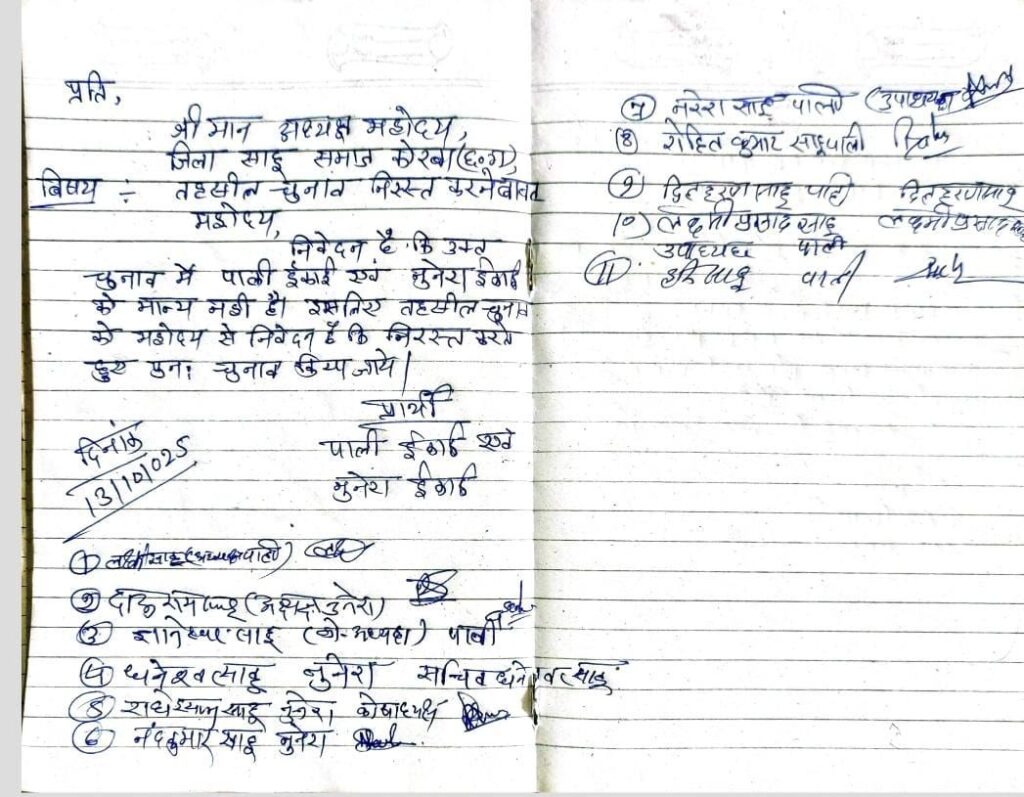 प्रति,
श्री मान अध्यक्ष महोदय,
जिला साहू समाज कोरबा (छ.ग)
विषय :- तहसील चुनाव निरस्त करने बाबत
महोदय,
निवेदन है कि उक्त
चुनाव में पाली ईकाई एवं नुनेरा ईकाई
को मान्य नही है। इसलिए तहसील चुनाव
को महोदय से निवेदन है कि निरस्त करते
हुए पुनः चुनाव किया जाये।
प्रार्थी
पाली ईकाई एवं
नुनेरा ईकाई
दिनांक
13/10/025
① साहू (अध्यक्ष पाली)
② राम साहू (अध्यक्ष नुनेरा)
③ साहू (अध्यक्ष) पाली
④ धनेश्वर साहू नुनेरा सचिव धनेश्वर साहू
⑤ राधेश्याम साहू नुनेरा कोषाध्यक्ष
⑥ नंदकुमार साहू नुनेरा
⑦ नरेश साहू पाली (उपाध्यक्ष)
⑧ रोहित कुमार साहू पाली
⑨ साहू पाली
10) लक्ष्मी प्रसाद साहू लक्ष्मी प्रसाद
उपाध्यक्ष पाली
⑪ साहू पाली